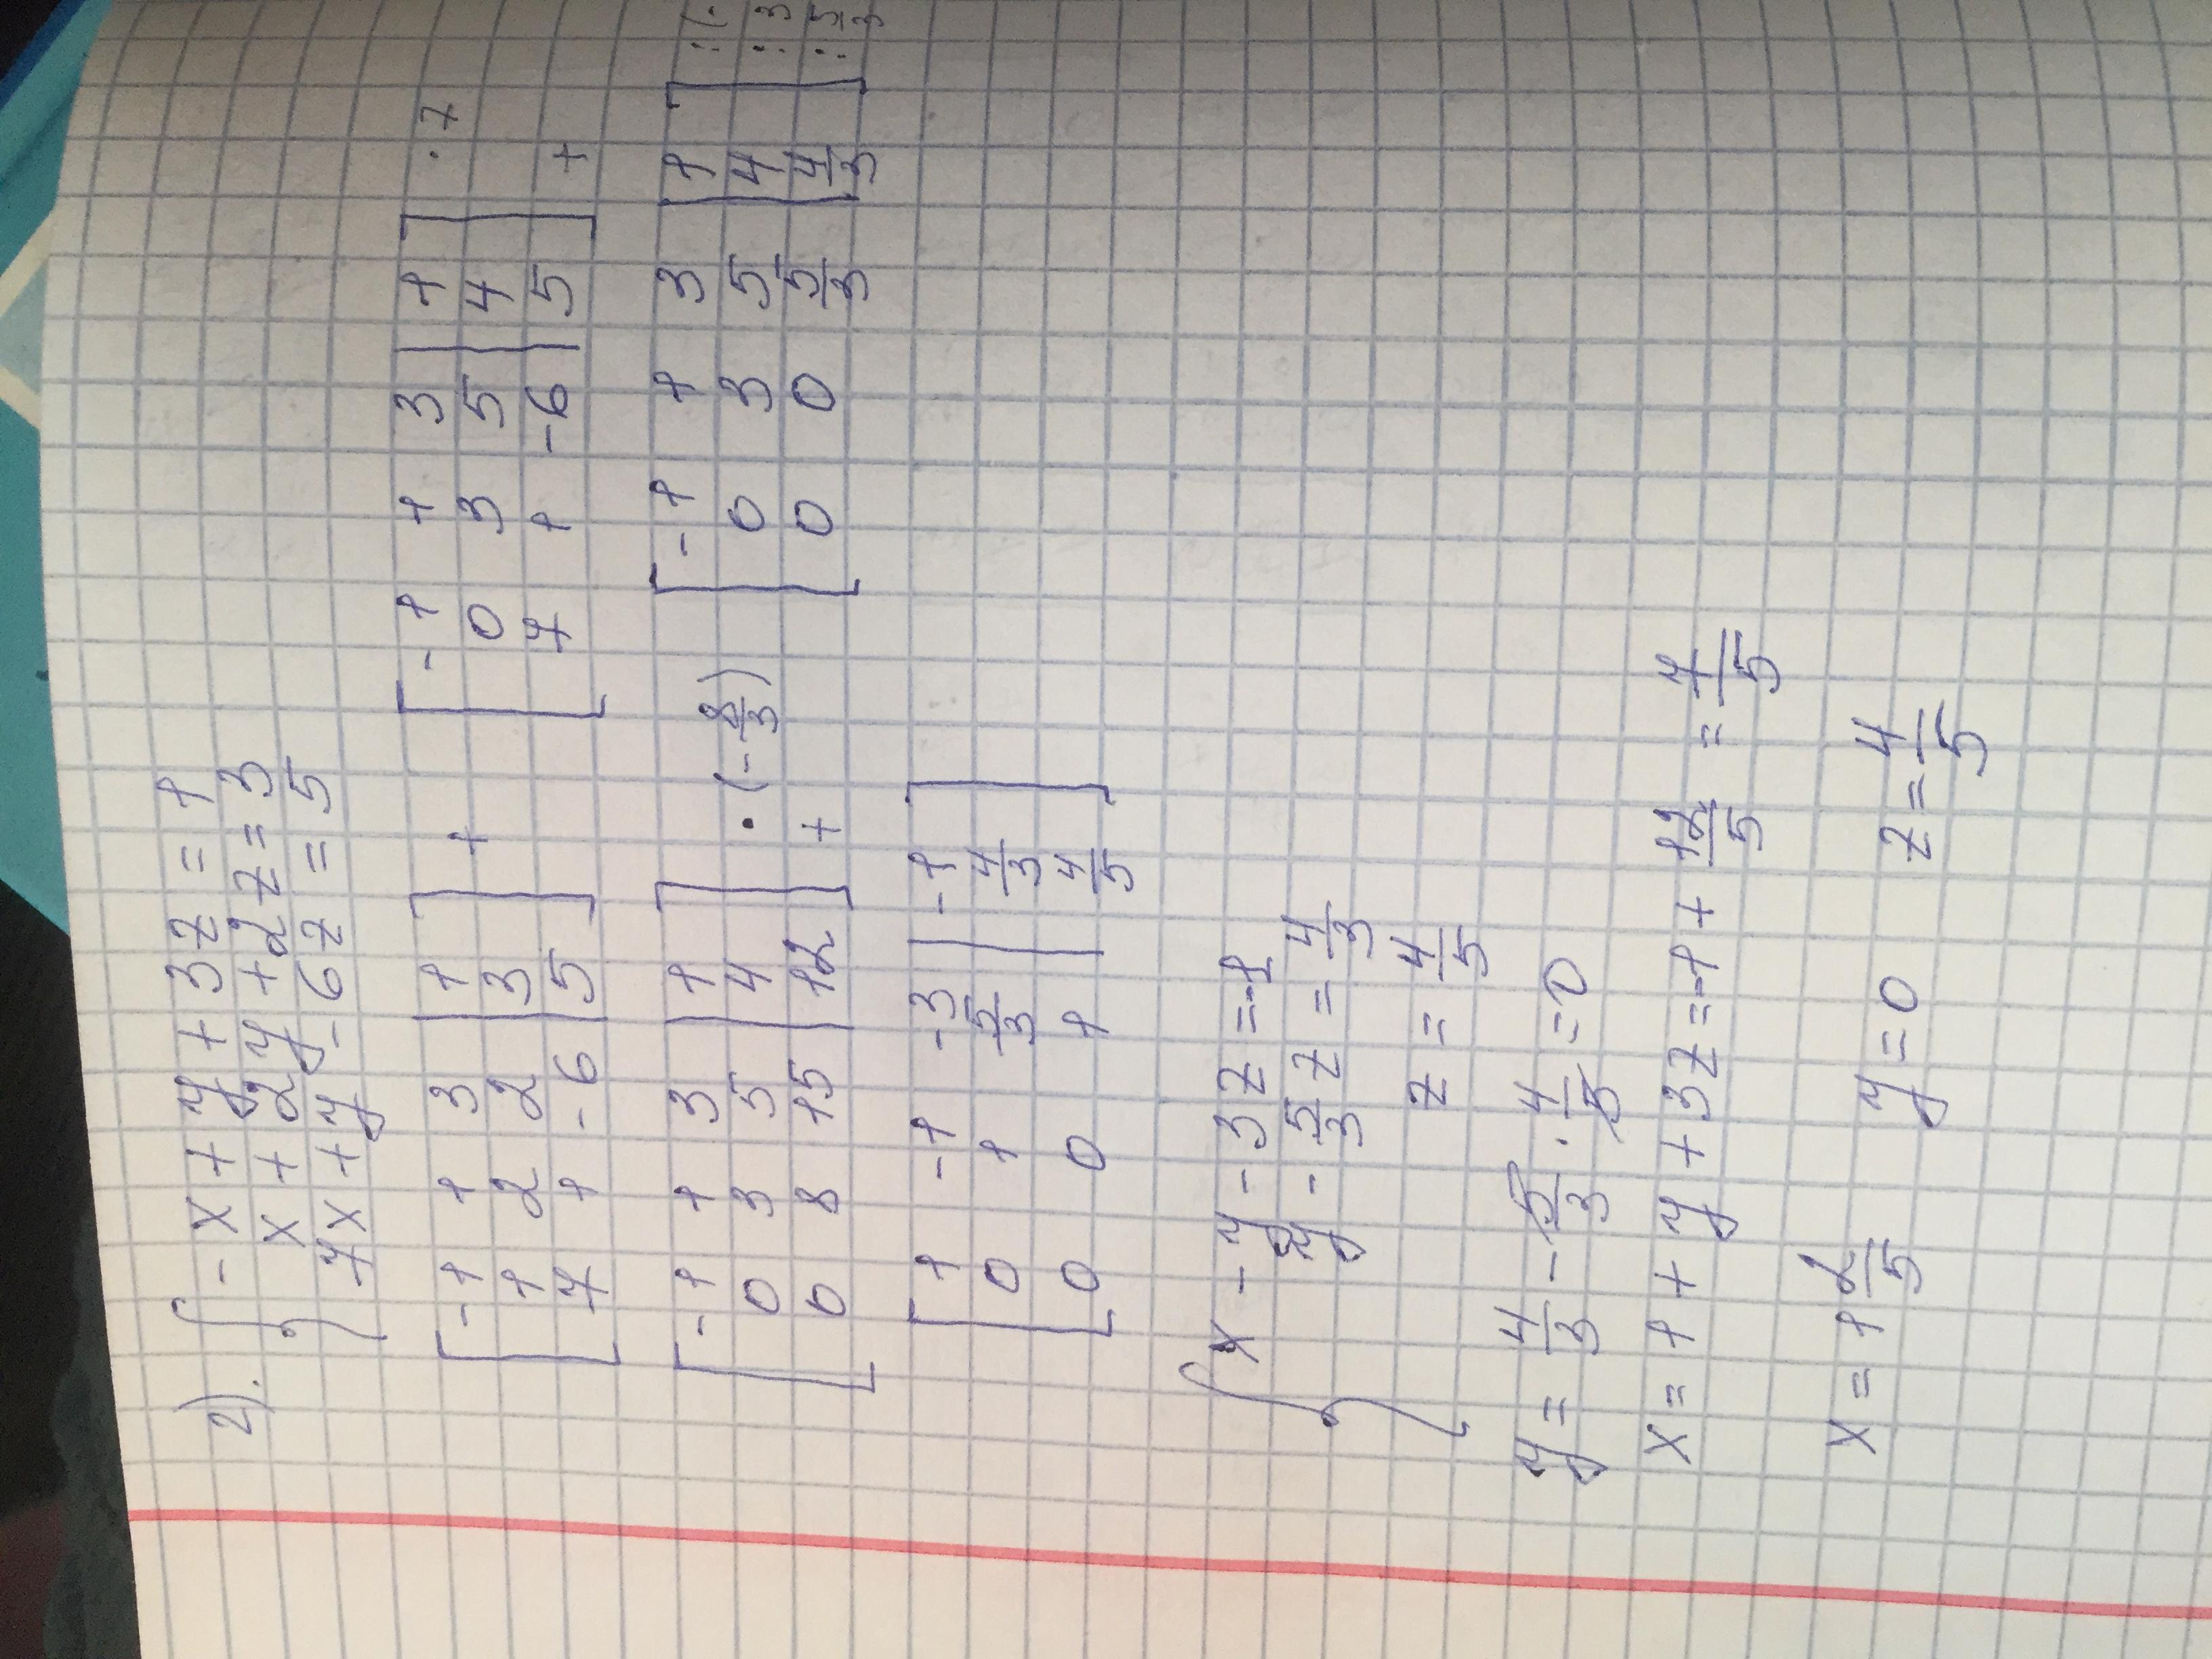 2). { -x + y + 3z = 1
x + 2y + 2z = 3
7x + y - 6z = 5
[ -1 1 3 | 1 ]
[ 1 2 2 | 3 ] +
[ 7 1 -6 | 5 ]
[ -1 1 3 | 1 ] · 7
[ 0 3 5 | 4 ]
[ 7 1 -6 | 5 ] +
[ -1 1 3 | 1 ]
[ 0 3 5 | 4 ] · (-8/3)
[ 0 8 15 | 12 ] +
[ -1 1 3 | 1 ] :(-
[ 0 3 5 | 4 ] : 3
[ 0 0 5/3 | 4/3 ] : 5/3
[ 1 -1 -3 | -1 ]
[ 0 1 5/3 | 4/3 ]
[ 0 0 1 | 4/5 ]
{ x - y - 3z = -1
y - 5/3 z = 4/3
z = 4/5
y = 4/3 - 5/3 · 4/5 = 0
x = 1 + y + 3z = -1 + 12/5 = 7/5
x = 1 2/5 y = 0 z = 4/5